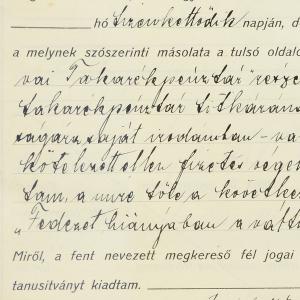 hó tizenkettedik napján, d
a melynek szószerinti másolata a tulsó oldalo
vai Takarékpénztár" részé
takarékpénztár titkárána
saját irodámban – va
kötelezett ellen fizetés végett
tam, a mire tőle a követke
„Fedezet hiányában a vált
Miről, a fent nevezett megkereső fél jogai
tanusítványt kiadtam.